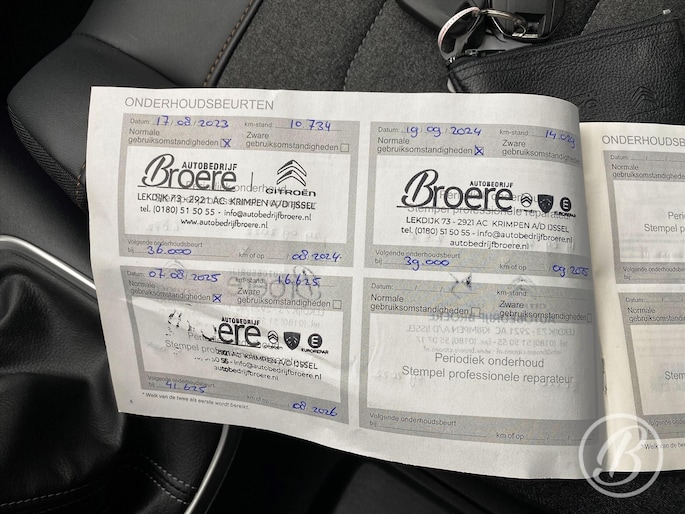 ONDERHOUDSBEURTEN
Datum: 17/08/2023 km-stand: 10 734
Normale gebruiksomstandigheden X
Zware gebruiksomstandigheden
AUTOBEDRIJF
Broere
CITROËN
LEKDIJK 73 - 2921 AC KRIMPEN A/D IJSSEL
tel. (0180) 51 50 55 - info@autobedrijfbroere.nl
www.autobedrijfbroere.nl
Volgende onderhoudsbeurt
bij 36.000 km of op 08 2024
Datum: 19/09/2024 km-stand:
Normale gebruiksomstandigheden X
Zware gebruiksomstandigheden
AUTOBEDRIJF
Broere
EUROREPAR
LEKDIJK 73 - 2921 AC KRIMPEN A/D IJSSEL
Stempel professionele reparateur
tel. (0180) 51 50 55 - info@autobedrijfbroere.nl
autobedrijfbroere.nl
Volgende onderhoudsbeurt
bij 39.000 km of op 09 2025
Datum: 07/08/2025 km-stand: 16.625
Normale gebruiksomstandigheden X
Zware gebruiksomstandigheden
AUTOBEDRIJF
Broere
EUROREPAR
2921 AC KRIMPEN A/D IJSSEL
50 55 - info@autobedrijfbroere.nl
autobedrijfbroere.nl
Volgende onderhoudsbeurt
bij 41.625 km of op 08 2026
* Welk van de twee als eerste wordt bereikt.
Datum: km-stand:
Normale gebruiksomstandigheden
Zware gebruiksomstandigheden
Periodiek onderhoud
Stempel professionele reparateur
Volgende onderhoudsbeurt
bij km of op
ONDERHOUDSB
Datum:
Normale
gebruiksomstandig
Period
Stempel pro
Volgende onderhoudsb
bij
Datum:
Normale
gebruiksomstandig
Perio
Stempel pr
B